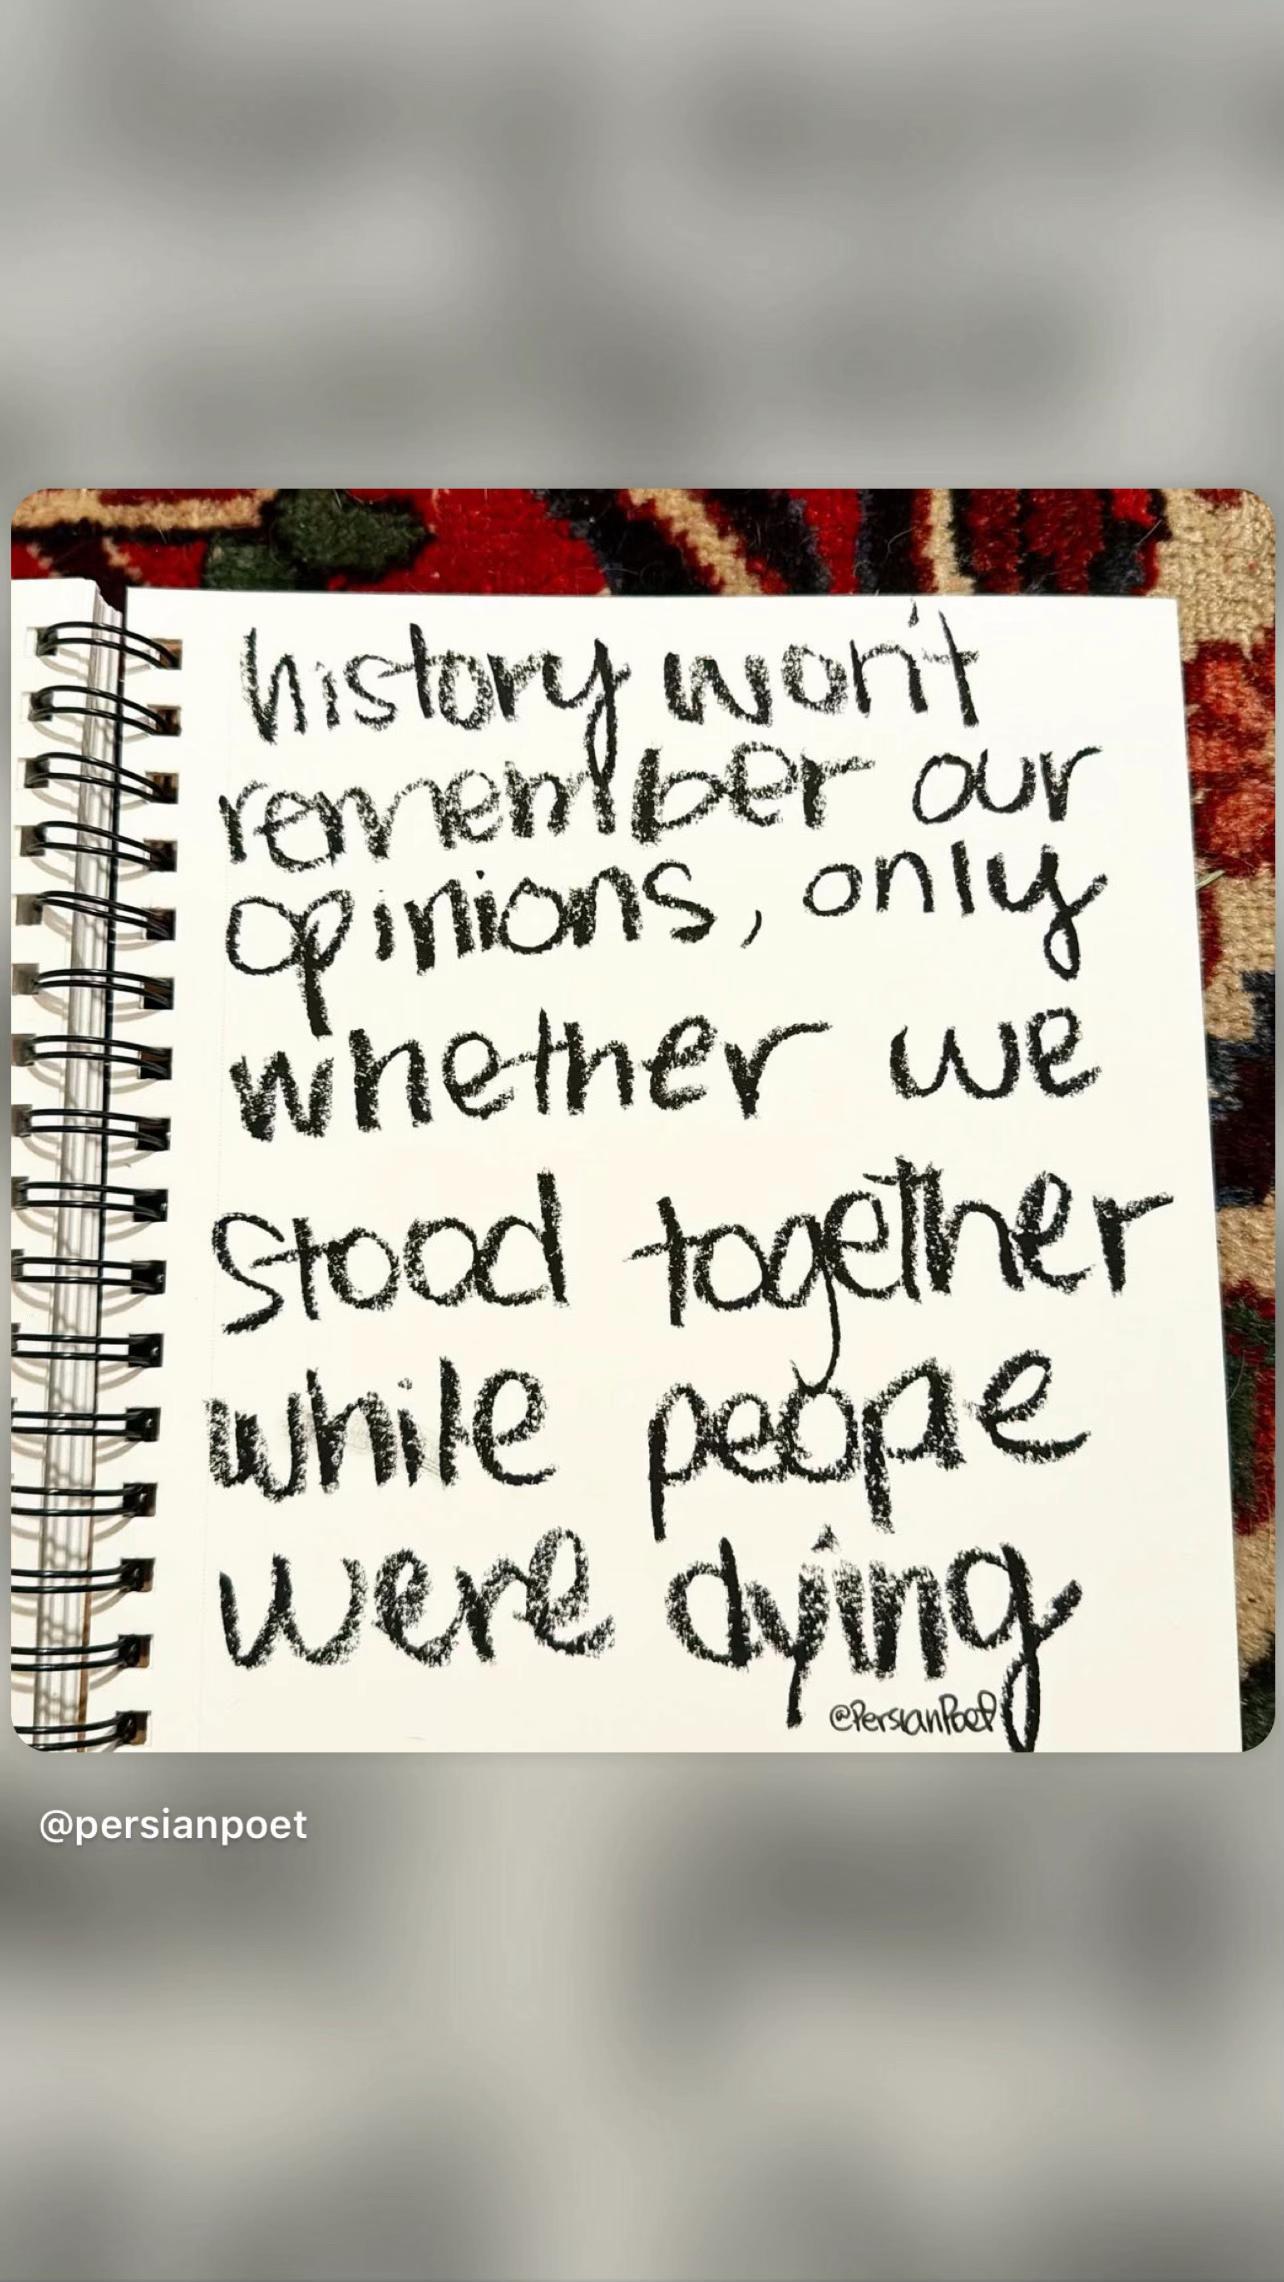 history won't
remember our
opinions, only
whether we
stood together
while people
were dying
@PersianPoet
@persianpoet